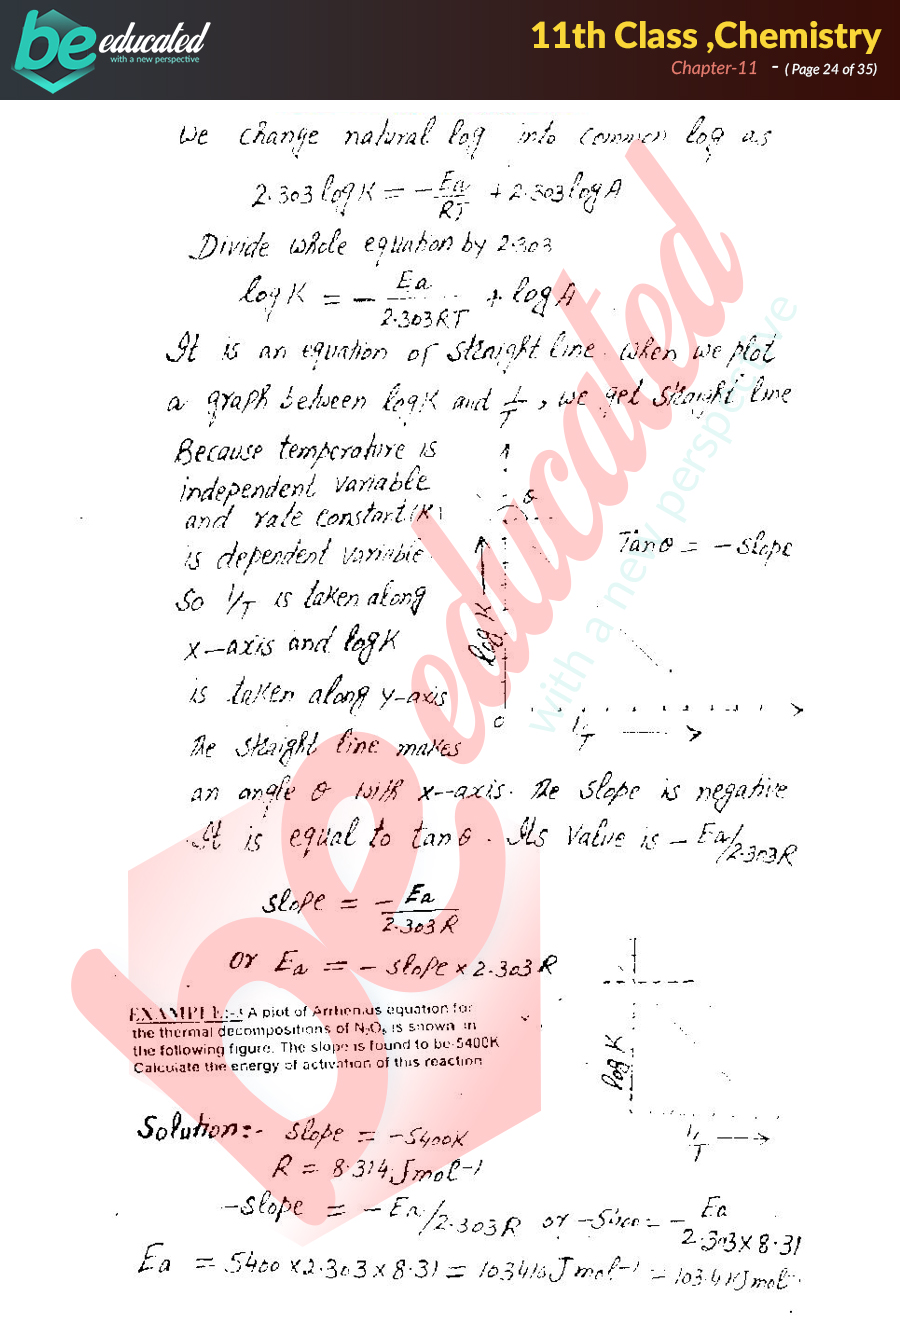 be educated
with a new perspective
11th Class ,Chemistry
Chapter-11 - ( Page 24 of 35)
We change natural log into common log as
2.303 log K = - Ea/RT + 2.303 log A
Divide whole equation by 2.303
log K = - Ea/2.303RT + log A
It is an equation of straight line. When we plot
a graph between log K and 1/T, we get straight line
Because temperature is
independent variable
and rate constant (K)
is dependent variable
So 1/T is taken along
x-axis and log K
is taken along y-axis
The straight line makes
θ
Tanθ = - slope
log K
0
1/T
an angle θ with x-axis. The slope is negative
It is equal to tanθ. Its value is - Ea/2.303R
slope = - Ea/2.303 R
Or Ea = - slope x 2.303 R
EXAMPLE:- A plot of Arrhenius equation for
the thermal decompositions of N₂O₅ is shown in
the following figure. The slope is found to be-5400K
Calculate the energy of activation of this reaction
log K
1/T
Solution:- slope = -5400K
R = 8.314 J mol-1
-slope = - Ea/2.303R or -5400 = - Ea/2.303 x 8.31
Ea = 5400 x 2.303 x 8.31 = 103410 J mol-1 = 103.4 KJ mol-
be educated
with a new perspective